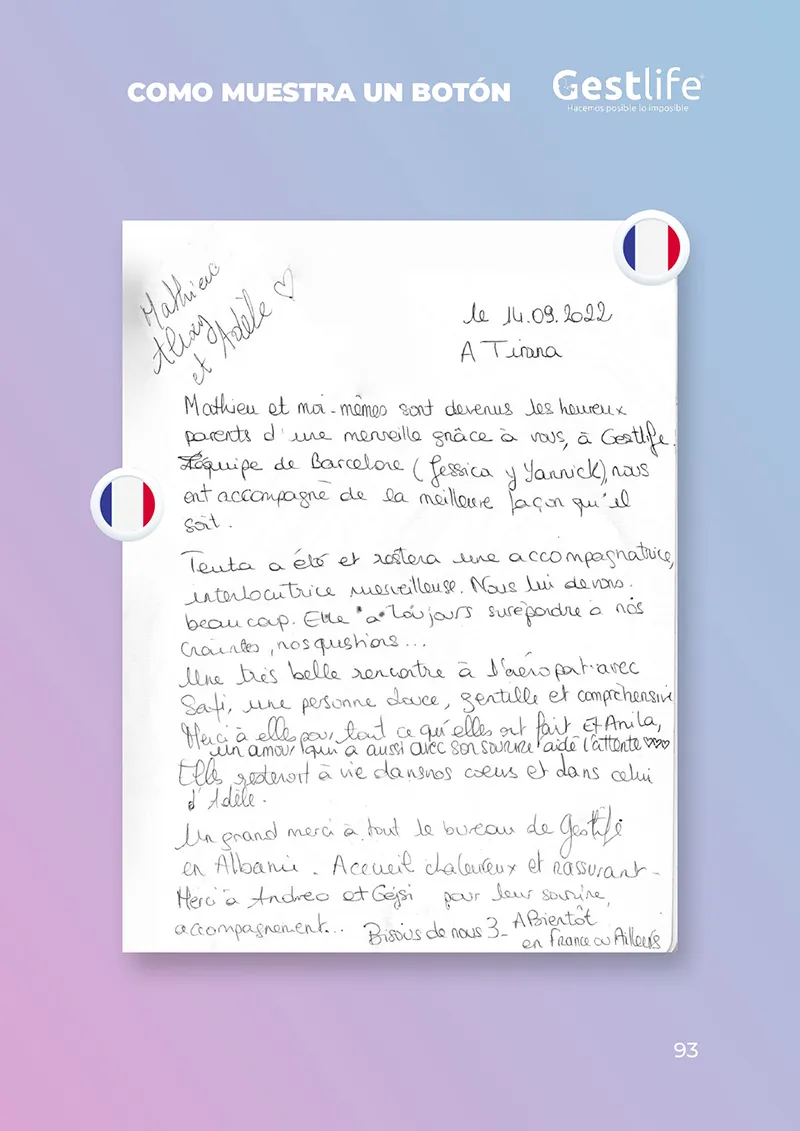 COMO MUESTRA UN BOTÓN
Gestlife
Hacemos posible lo imposible
Mathieu
et Adèle ♡
le 14.09.2022
A Tirana
Mathieu et moi-mêmes sont devenus les heureux
parents d'une merveille grâce à vous, à Gestlife.
L'équipe de Barcelone (Jessica y Yannick), nous
ont accompagné de la meilleure façon qu'il
soit.
Teuta a été et restera une accompagnatrice,
interlocutrice merveilleuse. Nous lui devons
beaucoup. Elle a toujours su répondre à nos
craintes, nos questions...
Une très belle rencontre à l'aéroport avec
Safi, une personne douce, gentille et compréhensive
Merci à elles pour tout ce qu'elles ont fait Et Anila,
un amour qui a aussi avec son sourire aidé l'attente ♡♡♡
Elles resteront à vie dans nos coeurs et dans celui
d'Adèle.
Un grand merci à tout le bureau de Gestlife
en Albanie. Accueil chaleureux et rassurant -
Merci à Andrea et Gejsi pour leur sourire,
accompagnement... Bisous de nous 3- A Bientôt
en France ou Ailleurs
93